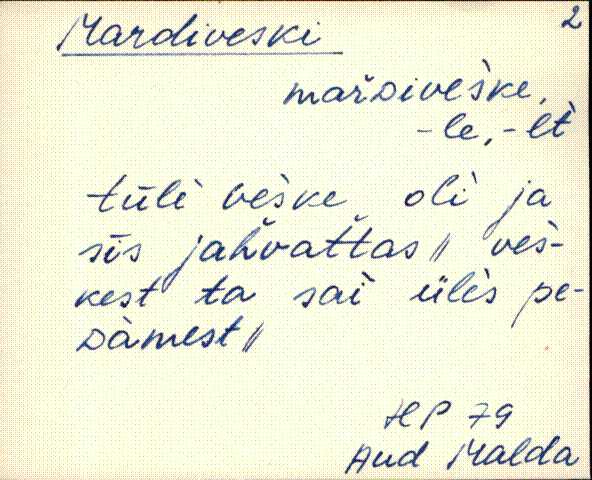 Mardiveski 2
mařᴅivèške,
-le, -lt̀
tūlì vèške oli ja
sīs jahvattas // veš-
kest ta sai ülès pe-
ᴅàmest //
HP 79
Aud Malda